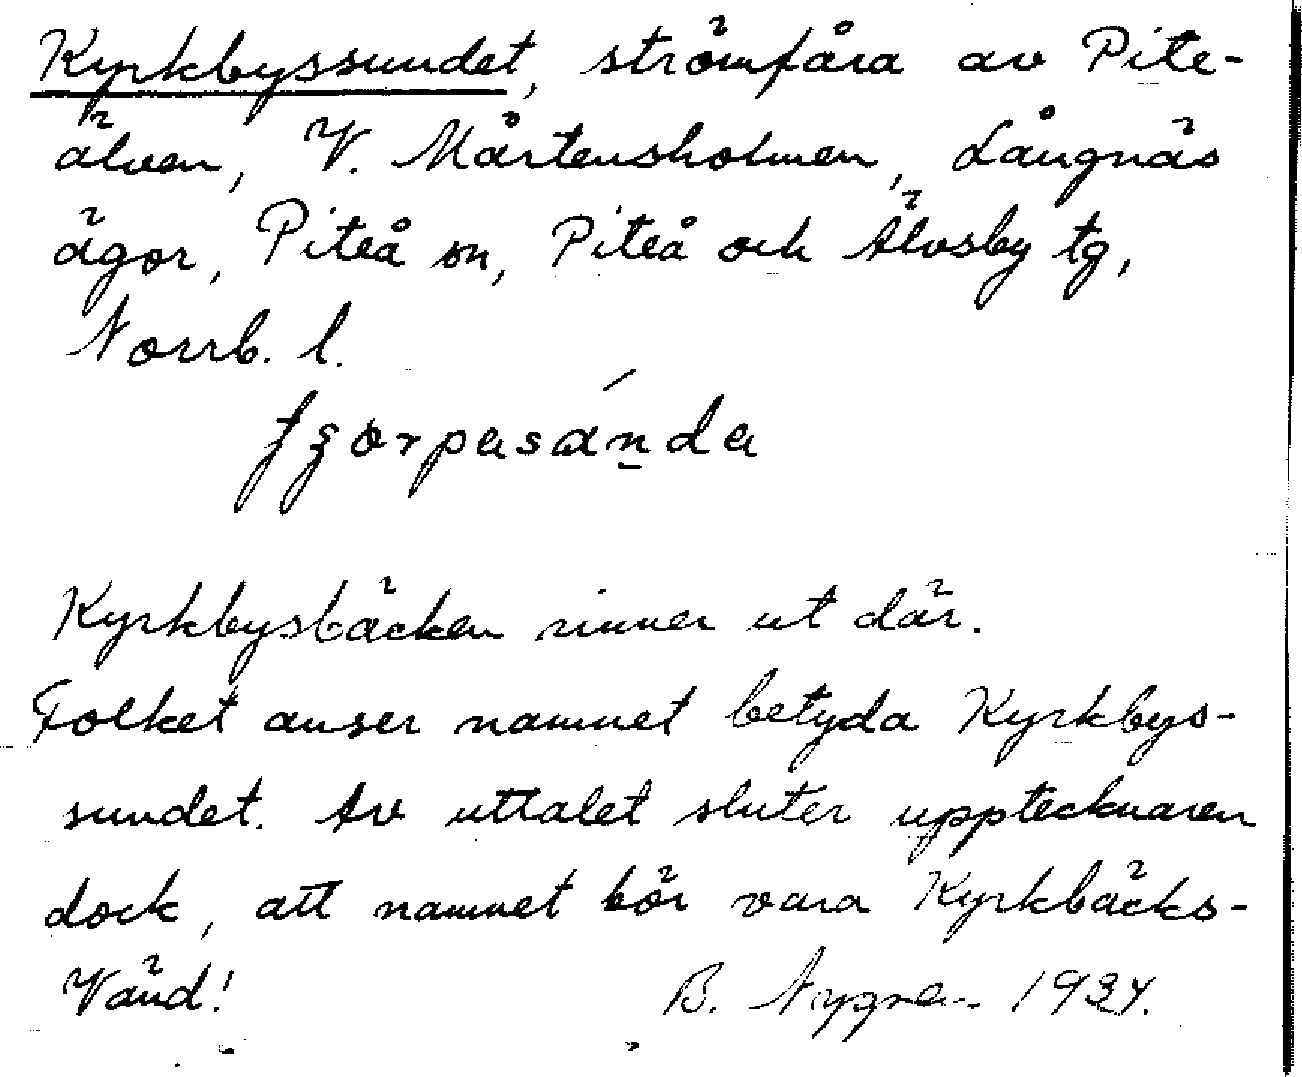 Kyrkbyssundet, strömfåra av Pite-
älven, V. Mårtensholmen, Långnäs
ägor, Piteå sn, Piteå och Älvsby tg,
Norrb. l.
Kyrkbysbäcken rinner ut där.
Folket anser namnet betyda Kyrkbys-
sundet. Av uttalet sluter upptecknaren
dock, att namnet bör vara Kyrkbäcks-
Vänd! B. Nygren 1934.